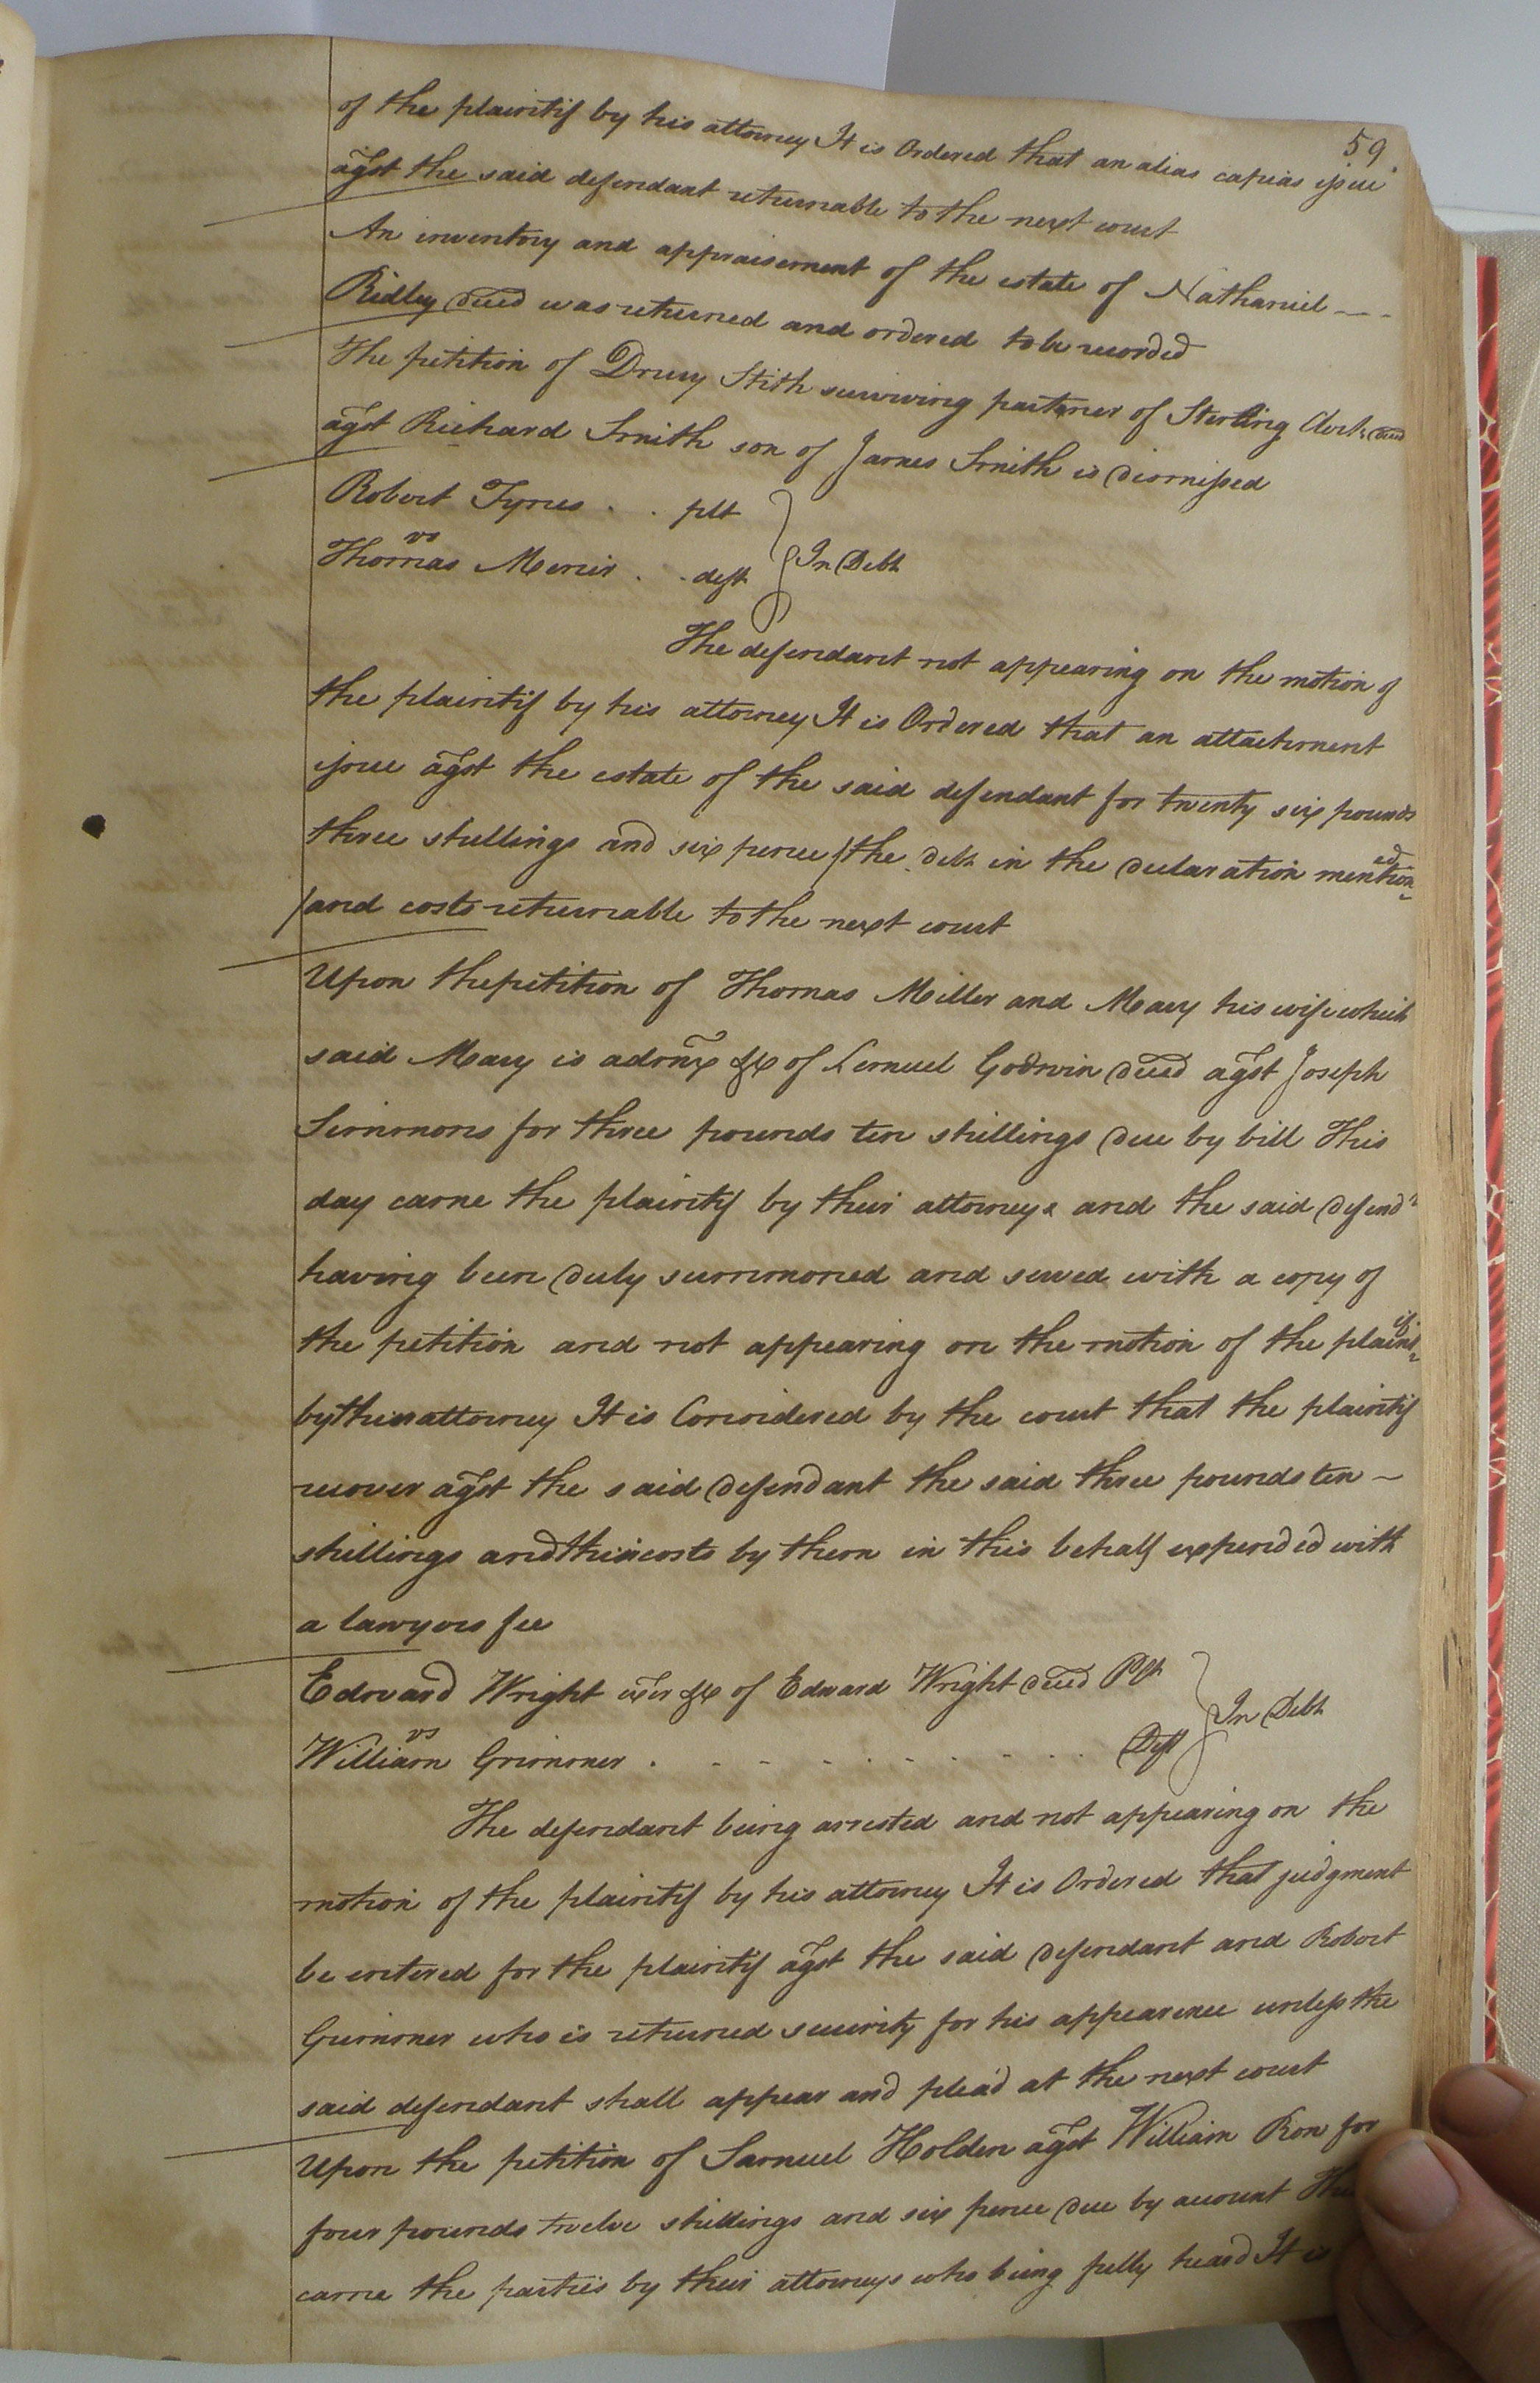 59
of the plaintif by his attorney It is Ordered that an alias capias issue
agst the said defendant returnable to the next court
An inventory and appraisement of the estate of Nathaniel ---
Ridley deced was returned and ordered to be recorded
The petition of Drury Stith surviving partner of Sterling Clark deced
agst Richard Smith son of James Smith is dismissed
Robert Tynes . . plt
vs
In Debt
Thomas Mercer . . deft
The defendant not appearing on the motion of
the plaintif by his attorney It is Ordered that an attachment
issue agst the estate of the said defendant for twenty six pounds
three shillings and six pence /the debt in the declaration mentioned
/and costs returnable to the next court
Upon the petition of Thomas Miller and Mary his wife which
said Mary is admx &c of Lemuel Godwin deced agst Joseph
Simmons for three pounds ten shillings due by bill This
day came the plaintif by their attorneys and the said defendt
having been duly summoned and served with a copy of
the petition and not appearing on the motion of the plaintif
by their attorney It is Considered by the court that the plaintif
recover agst the said defendant the said three pounds ten -
shillings and their costs by them in this behalf expended with
a lawyers fee
Edward Wright exer &c of Edward Wright deced Plt
vs
In Debt
William Grimmer . - - - - - - - . . Deft
The defendant being arrested and not appearing on the
motion of the plaintif by his attorney It is Ordered that judgment
be entered for the plaintif agst the said defendant and Robert
Grimmer who is returned security for his appearence unless the
said defendant shall appear and plead at the next court
Upon the petition of Samuel Holden agst William Ron for
four pounds twelve shillings and six pence due by account
came the parties by their attorneys who being fully heard It is